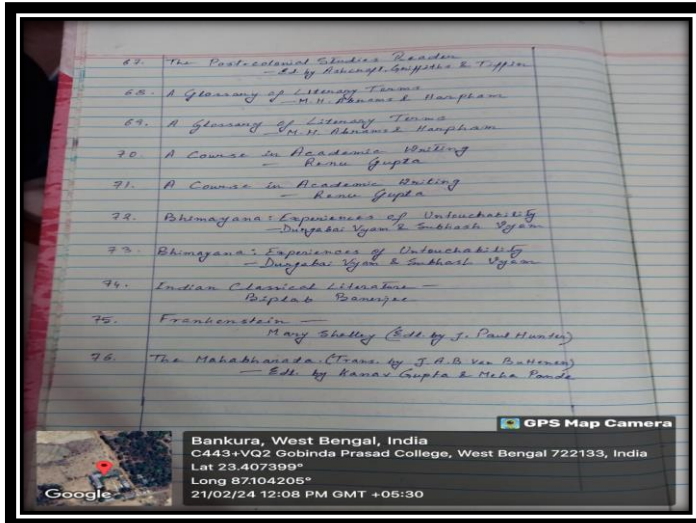 67. The Postcolonial Studies Reader
— Ed. by Ashcroft, Griffiths & Tiffin
68. A Glossary of Literary Terms
— M. H. Abrams & Harpham
69. A Glossary of Literary Terms
— M. H. Abrams & Harpham
70. A Course in Academic Writing
— Renu Gupta
71. A Course in Academic Writing
— Renu Gupta
72. Bhimayana: Experiences of Untouchability
— Durgabai Vyam & Subhash Vyam
73. Bhimayana: Experiences of Untouchability
— Durgabai Vyam & Subhash Vyam
74. Indian Classical Literature —
Biplab Banerjee
75. Frankenstein —
Mary Shelley (Edt. by J. Paul Hunter)
76. The Mahabharata. (Trans. by J.A.B Van Buitenen)
— Edt. by Kanav Gupta & Meha Pande
GPS Map Camera
Bankura, West Bengal, India
C443+VQ2 Gobinda Prasad College, West Bengal 722133, India
Lat 23.407399°
Long 87.104205°
21/02/24 12:08 PM GMT +05:30
Google